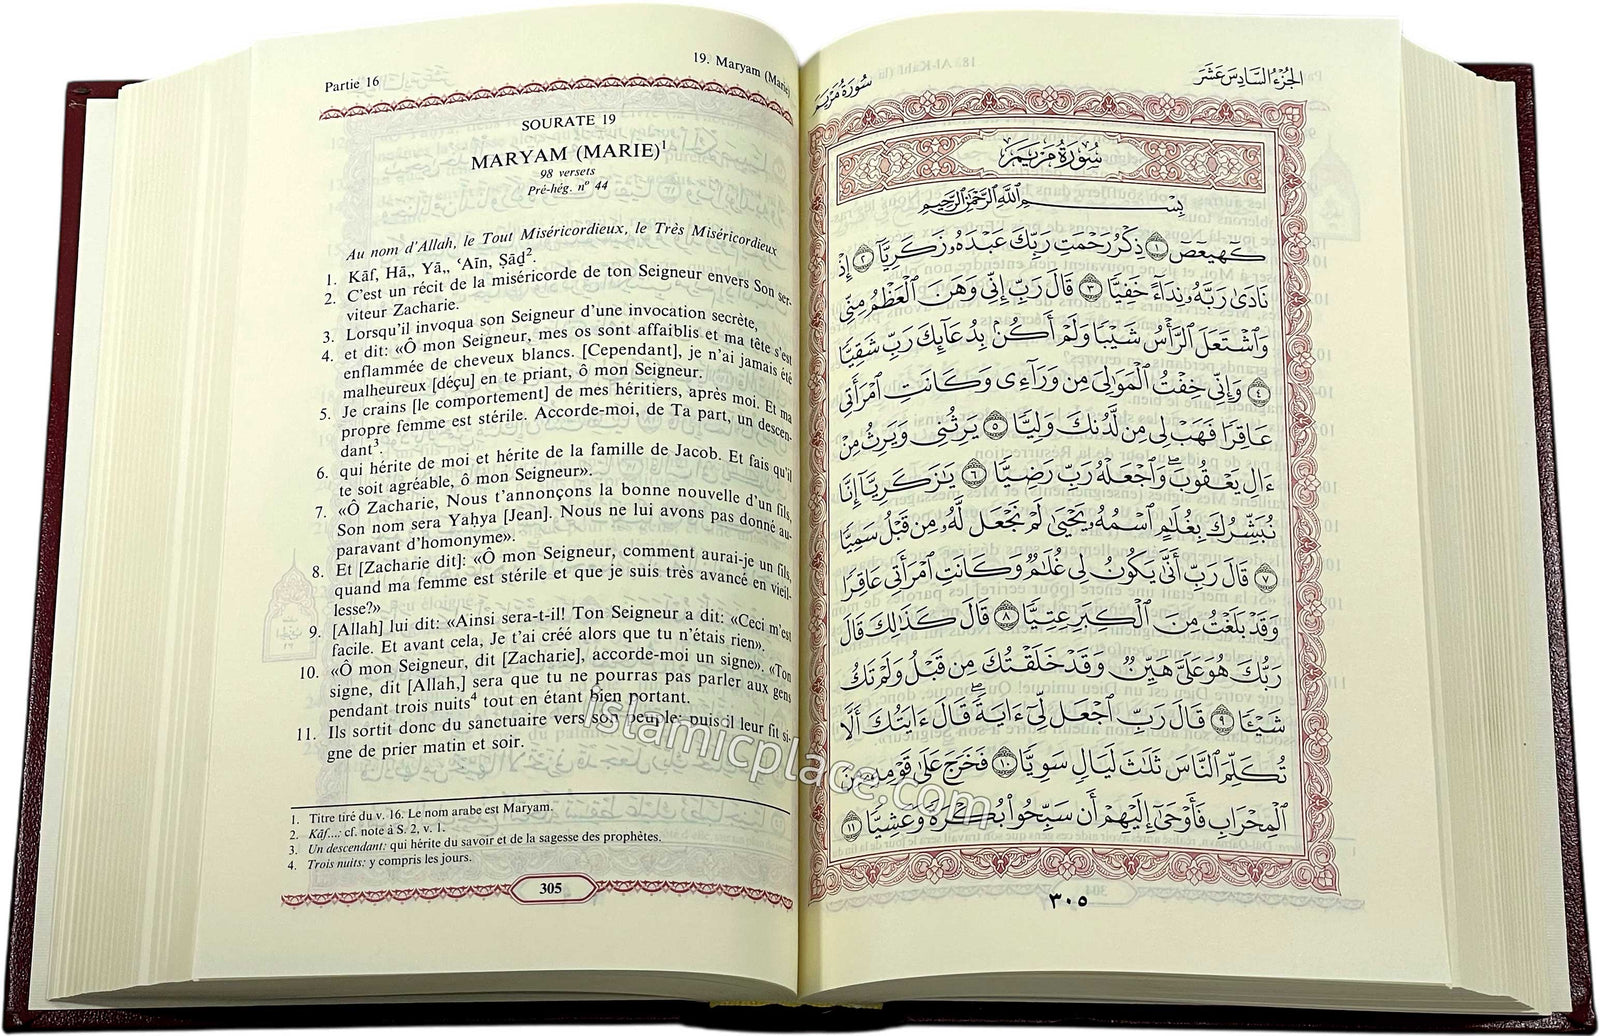 Partie 16
19. Maryam (Marie)
SOURATE 19
MARYAM (MARIE)¹
98 versets
Pré-hég. nº 44
Au nom d'Allah, le Tout Miséricordieux, le Très Miséricordieux
1. Kāf, Hā,, Yā,, ʿAīn, Ṣāḏ².
2. C'est un récit de la miséricorde de ton Seigneur envers Son ser-
viteur Zacharie.
3. Lorsqu'il invoqua son Seigneur d'une invocation secrète,
4. et dit: «Ô mon Seigneur, mes os sont affaiblis et ma tête s'est
enflammée de cheveux blancs. [Cependant], je n'ai jamais été
malheureux [déçu] en te priant, ô mon Seigneur.
5. Je crains [le comportement] de mes héritiers, après moi. Et ma
propre femme est stérile. Accorde-moi, de Ta part, un descen-
dant³.
6. qui hérite de moi et hérite de la famille de Jacob. Et fais qu'il
te soit agréable, ô mon Seigneur».
7. «Ô Zacharie, Nous t'annonçons la bonne nouvelle d'un fils,
Son nom sera Yaḥya [Jean]. Nous ne lui avons pas donné au-
paravant d'homonyme».
8. Et [Zacharie dit]: «Ô mon Seigneur, comment aurai-je un fils,
quand ma femme est stérile et que je suis très avancé en vieil-
lesse?»
9. [Allah] lui dit: «Ainsi sera-t-il! Ton Seigneur a dit: «Ceci m'est
facile. Et avant cela, Je t'ai créé alors que tu n'étais rien».
10. «Ô mon Seigneur, dit [Zacharie], accorde-moi un signe». «Ton
signe, dit [Allah,] sera que tu ne pourras pas parler aux gens
pendant trois nuits⁴ tout en étant bien portant.
11. Ils sortit donc du sanctuaire vers son peuple; puis il leur fit si-
gne de prier matin et soir.
1. Titre tiré du v. 16. Le nom arabe est Maryam.
2. Kāf...: cf. note à S. 2, v. 1.
3. Un descendant: qui hérite du savoir et de la sagesse des prophètes.
4. Trois nuits: y compris les jours.
305
الجزء السادس عشر
سورة مريم
سُورَةُ مَرْيَمَ
بِسْمِ اللَّهِ الرَّحْمَٰنِ الرَّحِيمِ
كٓهيعٓصٓ ١ ذِكْرُ رَحْمَتِ رَبِّكَ عَبْدَهُۥ زَكَرِيَّآ ٢ إِذْ
نَادَىٰ رَبَّهُۥ نِدَآءً خَفِيًّا ٣ قَالَ رَبِّ إِنِّى وَهَنَ ٱلْعَظْمُ مِنِّى
وَٱشْتَعَلَ ٱلرَّأْسُ شَيْبًا وَلَمْ أَكُنۢ بِدُعَآئِكَ رَبِّ شَقِيًّا
٤ وَإِنِّى خِفْتُ ٱلْمَوَٰلِىَ مِن وَرَآءِى وَكَانَتِ ٱمْرَأَتِى
عَاقِرًا فَهَبْ لِى مِن لَّدُنكَ وَلِيًّا ٥ يَرِثُنِى وَيَرِثُ مِنْ
ءَالِ يَعْقُوبَ ۖ وَٱجْعَلْهُ رَبِّ رَضِيًّا ٦ يَٰزَكَرِيَّآ إِنَّا
نُبَشِّرُكَ بِغُلَٰمٍ ٱسْمُهُۥ يَحْيَىٰ لَمْ نَجْعَل لَّهُۥ مِن قَبْلُ سَمِيًّا
٧ قَالَ رَبِّ أَنَّىٰ يَكُونُ لِى غُلَٰمٌ وَكَانَتِ ٱمْرَأَتِى عَاقِرًا
وَقَدْ بَلَغْتُ مِنَ ٱلْكِبَرِ عِتِيًّا ٨ قَالَ كَذَٰلِكَ قَالَ
رَبُّكَ هُوَ عَلَىَّ هَيِّنٌ وَقَدْ خَلَقْتُكَ مِن قَبْلُ وَلَمْ تَكُ
شَيْـًٔا ٩ قَالَ رَبِّ ٱجْعَل لِّىٓ ءَايَةً ۚ قَالَ ءَايَتُكَ أَلَّا
تُكَلِّمَ ٱلنَّاسَ ثَلَٰثَ لَيَالٍ سَوِيًّا ١٠ فَخَرَجَ عَلَىٰ قَوْمِهِۦ مِنَ
ٱلْمِحْرَابِ فَأَوْحَىٰٓ إِلَيْهِمْ أَن سَبِّحُوا۟ بُكْرَةً وَعَشِيًّا ١١
٣٠٥
islamicplace.com